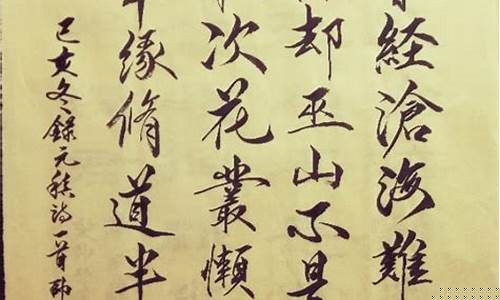 経滄海難
却巫山不是
次花叢懶
半緣脩道半
己亥冬錄元稹詩一首